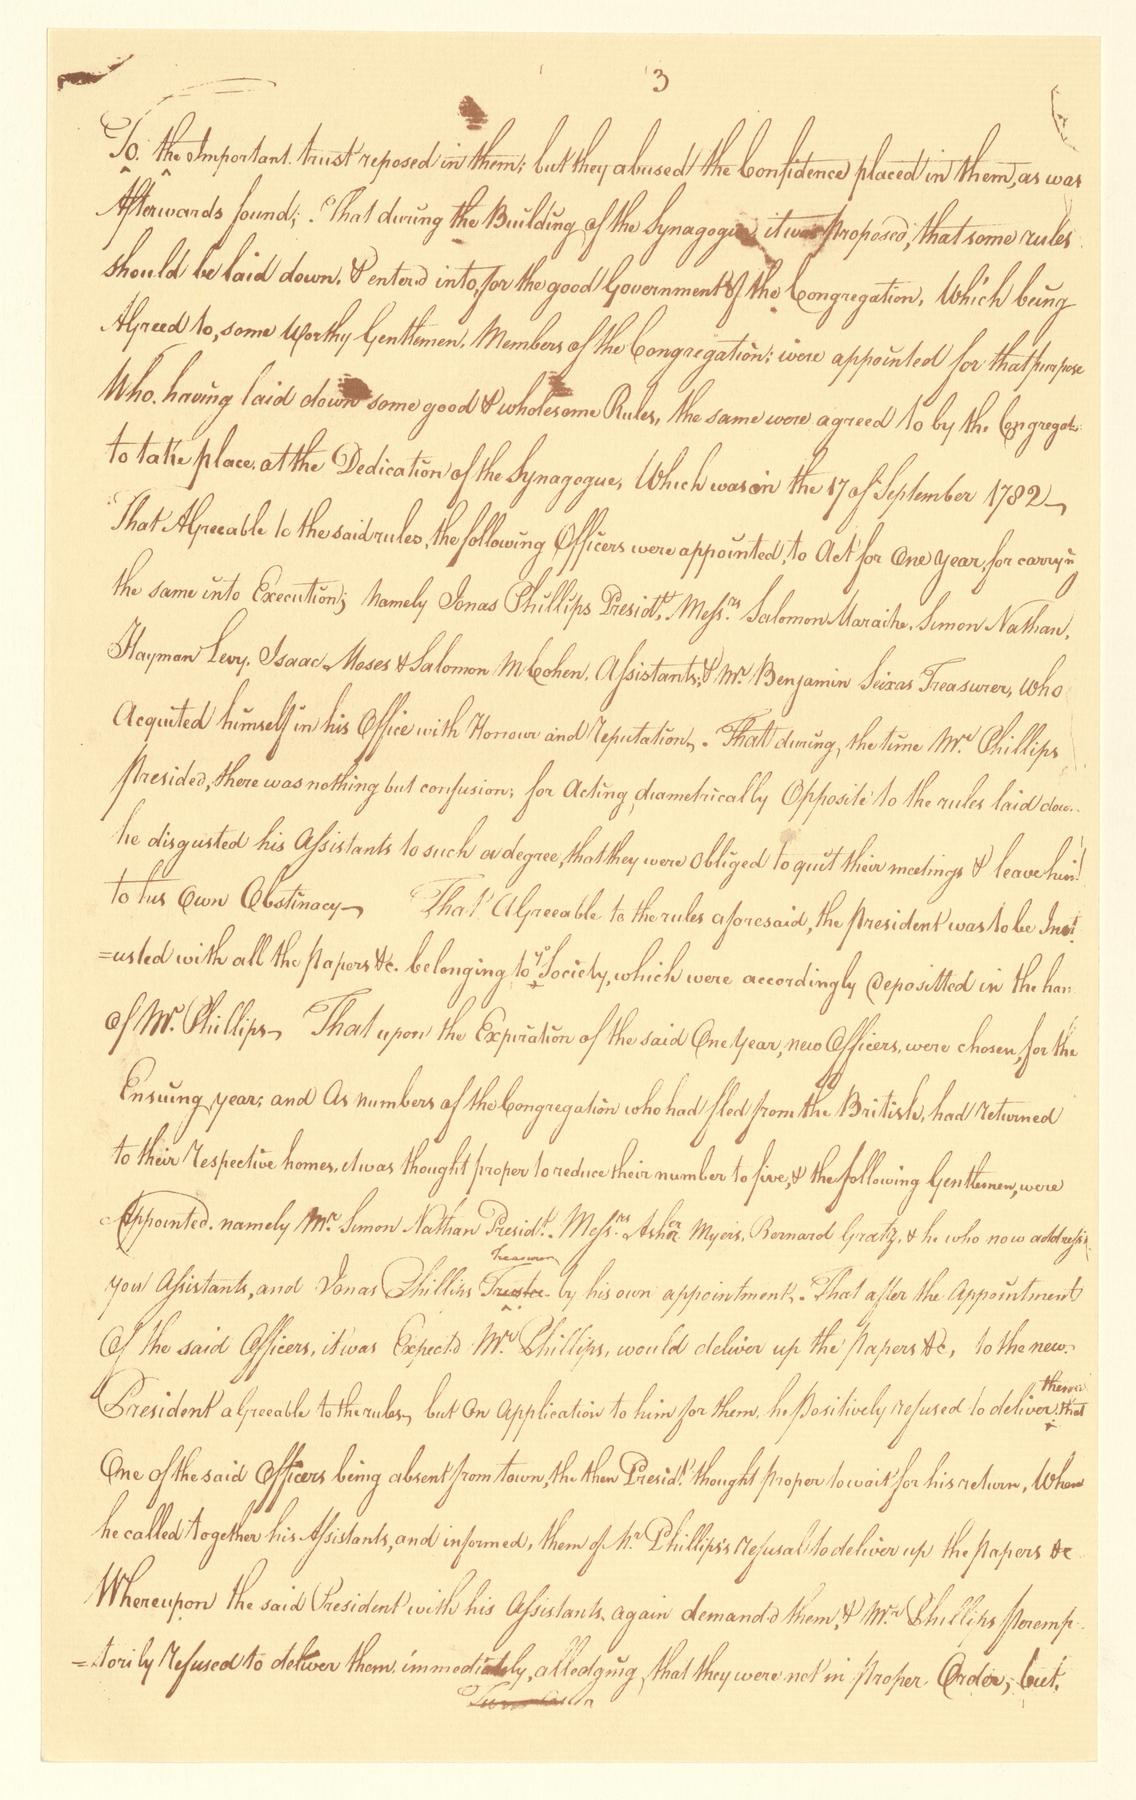 3
To the Important trust reposed in them; but they abused the Confidence placed in them, as was
Afterwards found; . That during the Building of the Synagogue it was proposed, that some rules
should be laid down, & enterd into, for the good Government of the Congregation, Which being
Agreed to, some Worthy Gentlemen, Members of the Congregation; were appointed for that purpose
Who, having laid down some good & wholesome Rules, the same were agreed to by the Congregat.
to take place at the Dedication of the Synagogue, Which was on the 17 of September 1782
That Agreeable to the said rules, the following Officers were appointed, to Act for One year, for carryg
the same into Execution; namely Jonas Phillips Presidt., Messrs. Salomon Marache, Simon Nathan,
Hayman Levy, Isaac Moses & Salomon M Cohen, Assistants; & Mr. Benjamin Seixas Treasurer, Who
Acquited himself in his Office with Honour and Reputation. That during the time Mr. Phillips
presided, there was nothing but confusion; for Acting diametrically Opposite to the rules laid dow
he disgusted his Assistants to such a degree, that they were Obliged to quit their meetings & leave him
to his Own Obstinacy That Agreeable to the rules aforesaid, the president was to be Int
=usted with all the papers &c. belonging to ye Society, which were accordingly Depositted in the han
of Mr. Phillips That upon the Expiration of the said One year, new Officers, were chosen, for the
Ensuing year; and As numbers of the Congregation who had fled from the British, had Returned
to their Respective homes, it was thought proper to reduce their number to five, & the following Gentlemen, were
Appointed. namely Mr. Simon Nathan Presidt. Messrs. Asher Myers, Bernard Gratz, & he who now address
you Assistants, and Jonas Phillips Treasurer by his own appointment. That after the Appointment
Of the said Officers, it was Expectd Mr. Phillips, would deliver up the papers &c, to the new
President agreeable to the rules, but On Application to him for them, he positively refused to deliver them that
One of the said Officers being absent from town, the then Presidt. thought proper to wait for his return, When
he called together his Assistants, and informed, them of Mr. Phillips's refusal to deliver up the papers &c
Whereupon the said President with his Assistants again demandd them, & Mr. Phillips peremp
=torily Refused to deliver them immediately, alledging that they were not in proper Order, but,